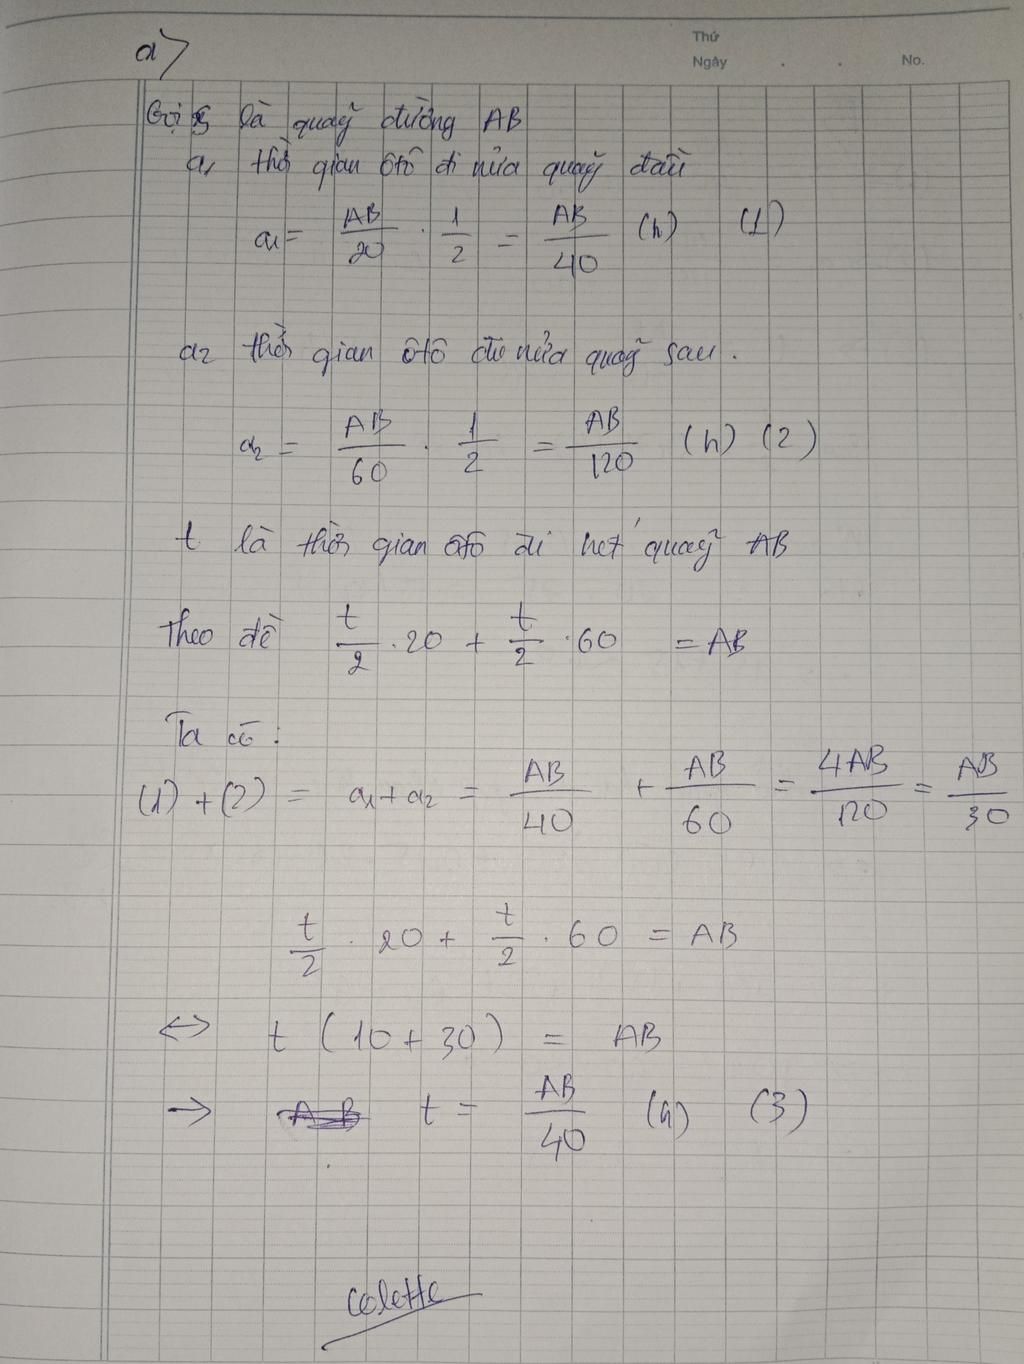 a)
Thứ
Ngày . . No.
Gọi S là quãg đường AB
a1 thời gian ôtô đi nửa quãg đầu
a1 = AB/20 . 1/2 = AB/40 (h) (1)
a2 thời gian ôtô đi nửa quãg sau.
a2 = AB/60 . 1/2 = AB/120 (h) (2)
t là thời gian ôtô đi hết quãg AB
Theo đề t/2 . 20 + t/2 . 60 = AB
Ta có:
(1) + (2) = a1 + a2 = AB/40 + AB/60 = 4AB/120 = AB/30
t/2 . 20 + t/2 . 60 = AB
<-> t (10 + 30) = AB
-> AB t = AB/40 (h) (3)
Colette